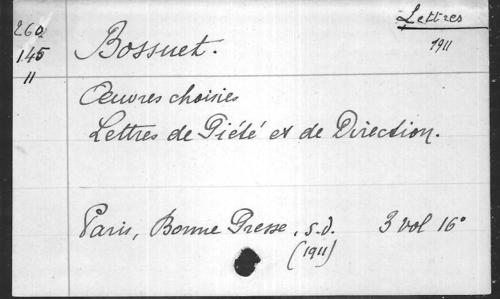 260
145
11
Lettres
1911
Bossuet.
Œuvres choisies
Lettres de Piété et de Direction.
Paris, Bonne Presse, s.d. 3 vol 16°
(1911)